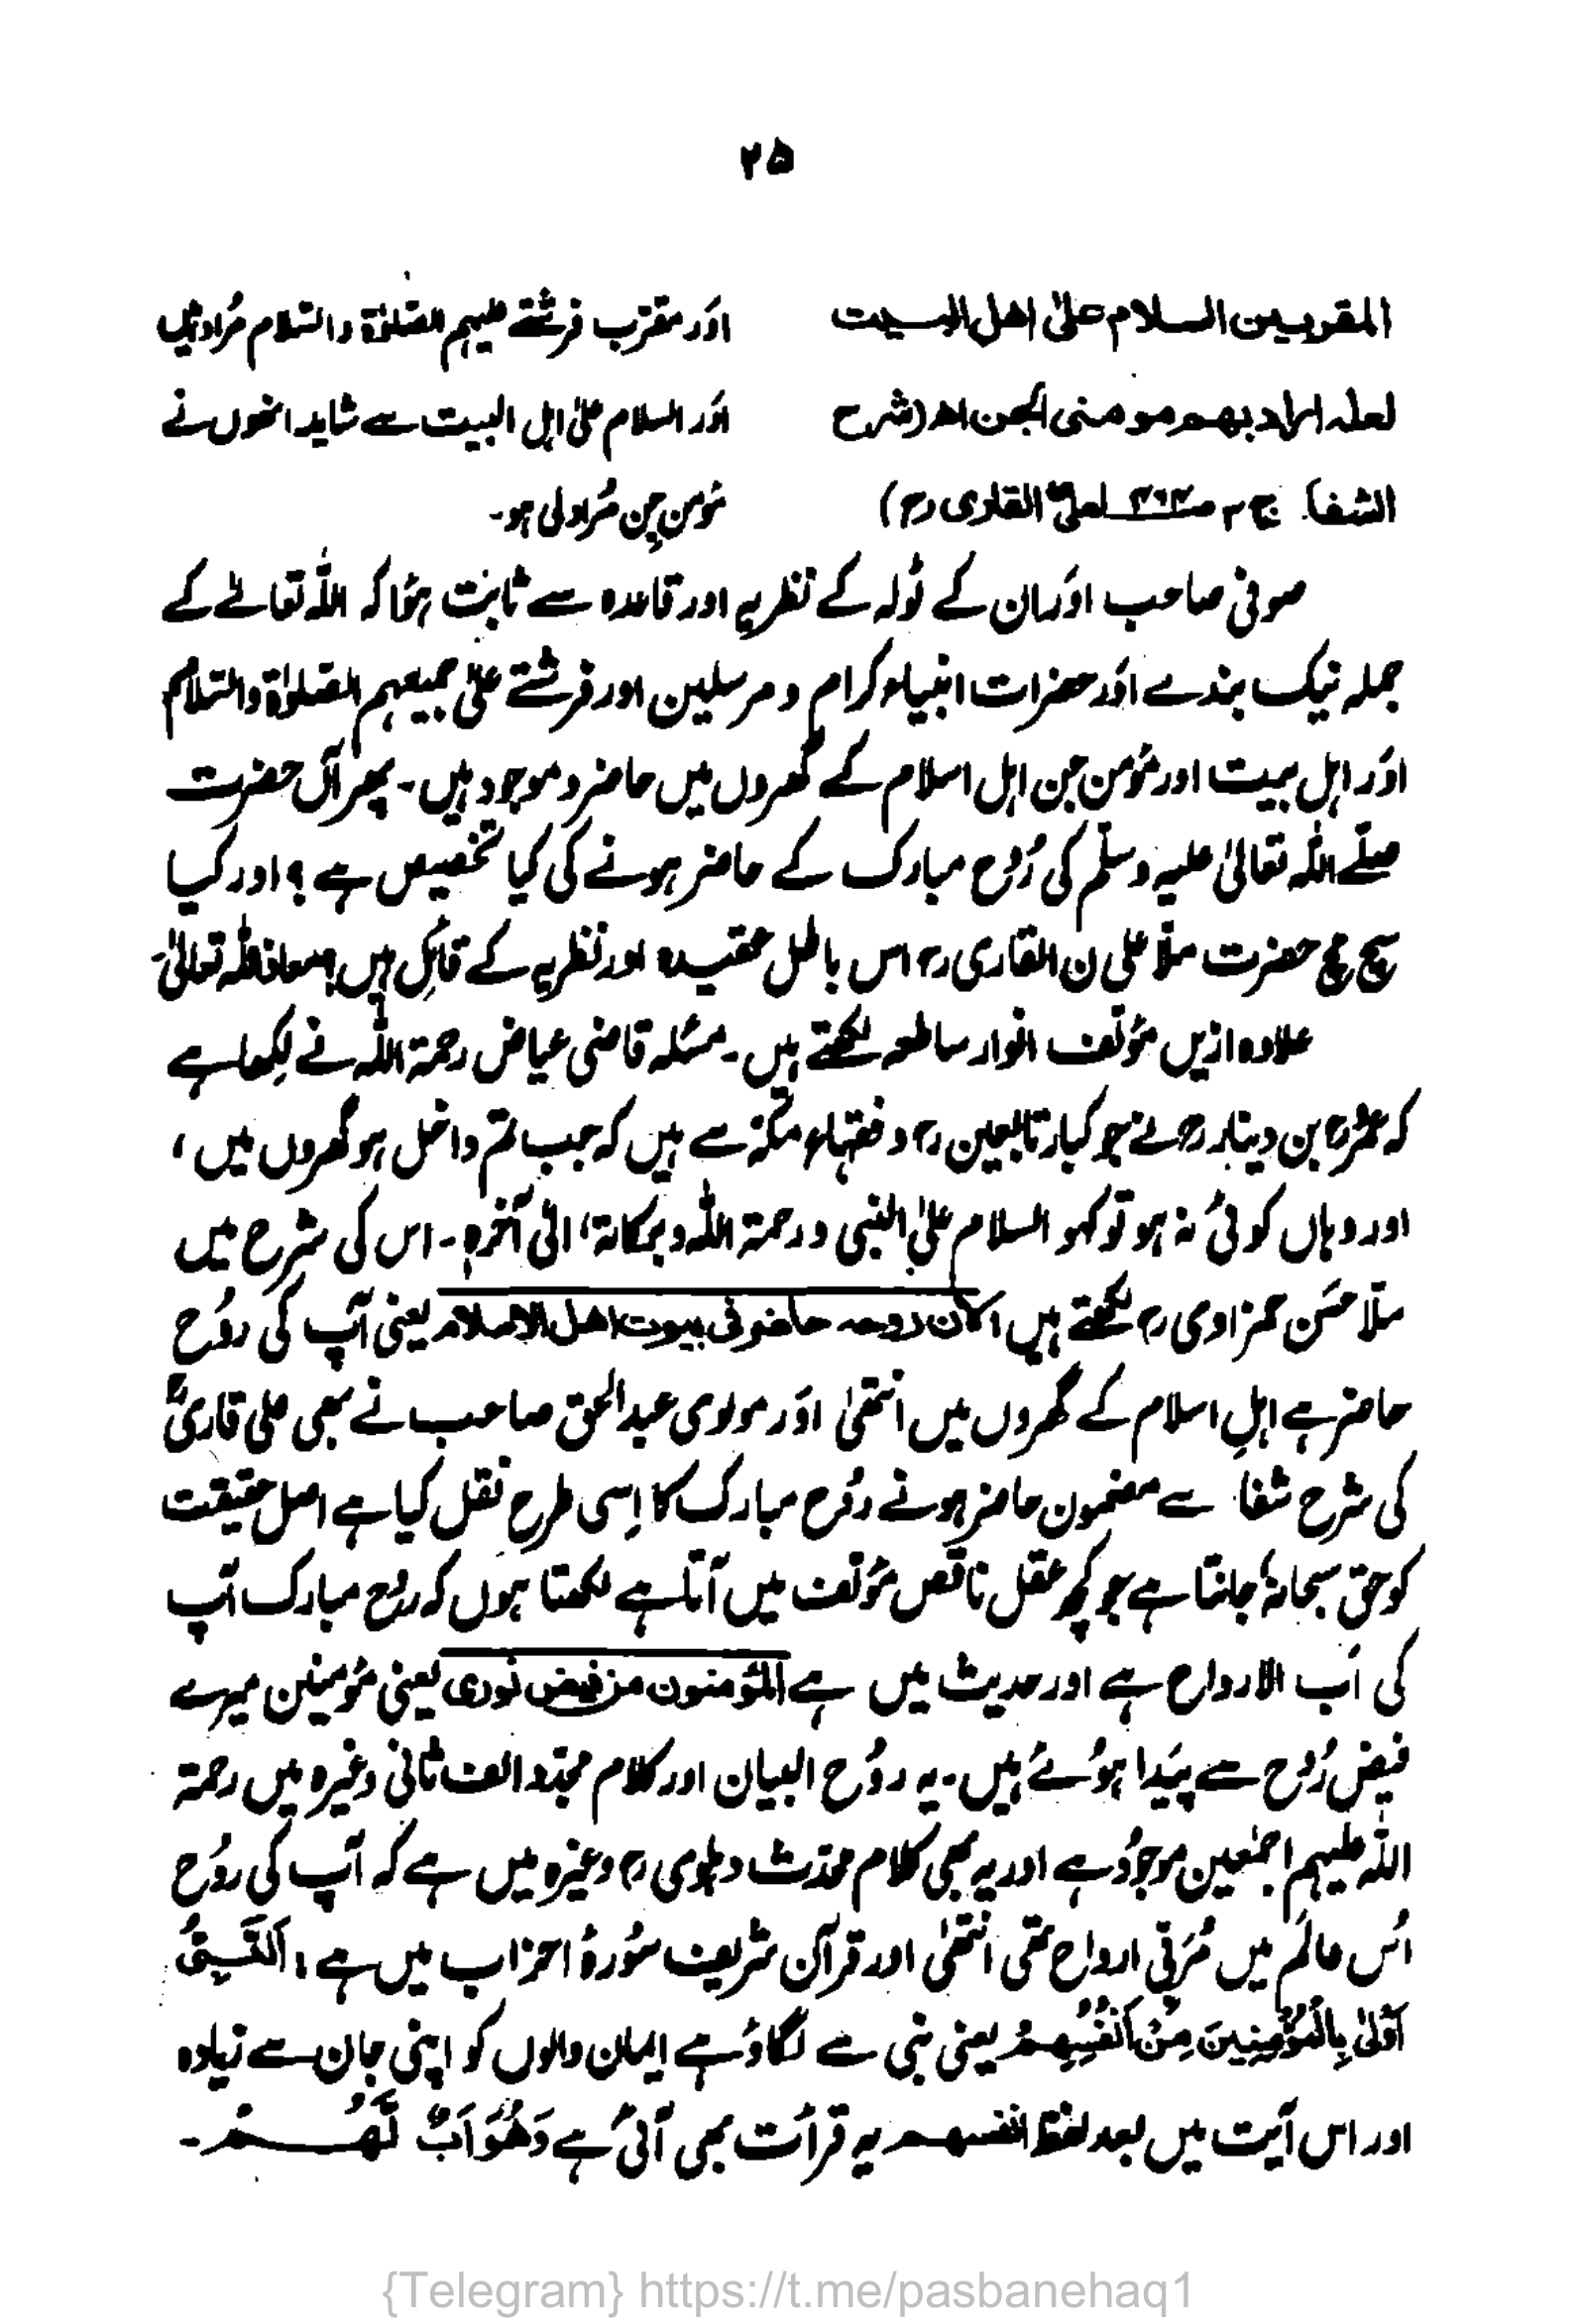 ۲۵
المقربین السلام علیٰ اهل البیت
اور مقرّب فرشتے علیہم الصّلوٰۃ والسّلام مُراد ہیں
لعله اراد بهم مومنی الجن اھ (شرح
اور السلام علیٰ اہل البیت سے شاید انھوں نے
الشفاء ج ۳ ص۴۶۴ لعلی القاری رح)
مؤمن جِن مُراد لی ہو۔
صوفی صاحب اور ان کے ٹولہ کے نظریہ اور قاعدہ سے ثابت ہؤا کہ اللہ تعالےٰ کے
جملہ نیک بندے اور حضرات انبیاء کرام و مرسلین اور فرشتے علیٰ جمیعہم الصّلوٰۃ والسّلام
اور اہل بیت اور مؤمن جن اہل اسلام کے گھروں میں حاضر و موجود ہیں۔ پھر آں حضرت
صلّے اللہ تعالیٰ علیہ وسلّم کی رُوح مبارک کے حاضر ہونے کی کیا تخصیص ہے؟ اور کیا
سچ مچ حضرت ملّا علی ن القاری رح اس باطل عقیدہ اور نظریہ کے قائِل ہیں؟ معاذ اللہ تعالیٰ۔
علاوہ ازیں مؤلف انوار ساطعہ لکھتے ہیں۔ مسئلہ قاضی عیاض رحمۃ اللہ نے لِکھا ہے
کہ عمروؒ بن دینار رح نے جو کبار تابعین رح و فقہاء مکّہ سے ہیں کہ جب تم داخل ہو گھروں میں،
اور وہاں کوئی نہ ہو تو کہو السلام علیٰ النبی و رحمۃ اللہ وبرکاتہٗ، الیٰ آخرہٖ۔ اس کی شرح میں
ملّا حَسَن حمزاوی رح لکھتے ہیں، لان روحه حاضر فی بیوت اهل الاسلام یعنی آپ کی روُح
حاضر ہے اہلِ اسلام کے گھروں میں انتہیٰ اور مولوی عبدالحق صاحب نے بھی علی قاریؒ
کی شرح شفاء سے مضمون حاضر ہونے روُح مبارک کا اِسی طرح نقل کیا ہے اصل حقیقت
کو حق سبحانہٗ جانتا ہے جو کچھ عقل ناقص مؤلف میں آتا ہے لکھتا ہوں کہ روُح مبارک آپ
کی اَب الارواح ہے اور حدیث میں ہے المؤمنون من فیض نوری یعنی مؤمنین میرے
فیض رُوح سے پَیدا ہوُئے ہیں۔ یہ روُح البیان اور کلام مجدّد الف ثانی وغیرہ میں رحمۃ
اللہ علیہم اجمعین موجوُد ہے اور یہ بھی کلام محدّث دہلوی رح وغیرہ میں ہے کہ آپ کی روُح
اُس عالَم میں مُربّی ارواح تھی انتہیٰ اور قرآن شریف سُورۂ احزاب میں ہے، اَلنَّبِیُّ
اَوْلیٰ بِالْمُؤْمِنِینَ مِنْ اَنْفُسِهِمْ یعنی نبی سے لگاؤ ہے ایمان والوں کو اپنی جان سے زیادہ
اور اس آیت میں بعد لفظ انفسهم یہ قرأت بھی آئی ہے وَهُوَ اَبٌ لَّهُمْ۔
{Telegram} https://t.me/pasbanehaq1